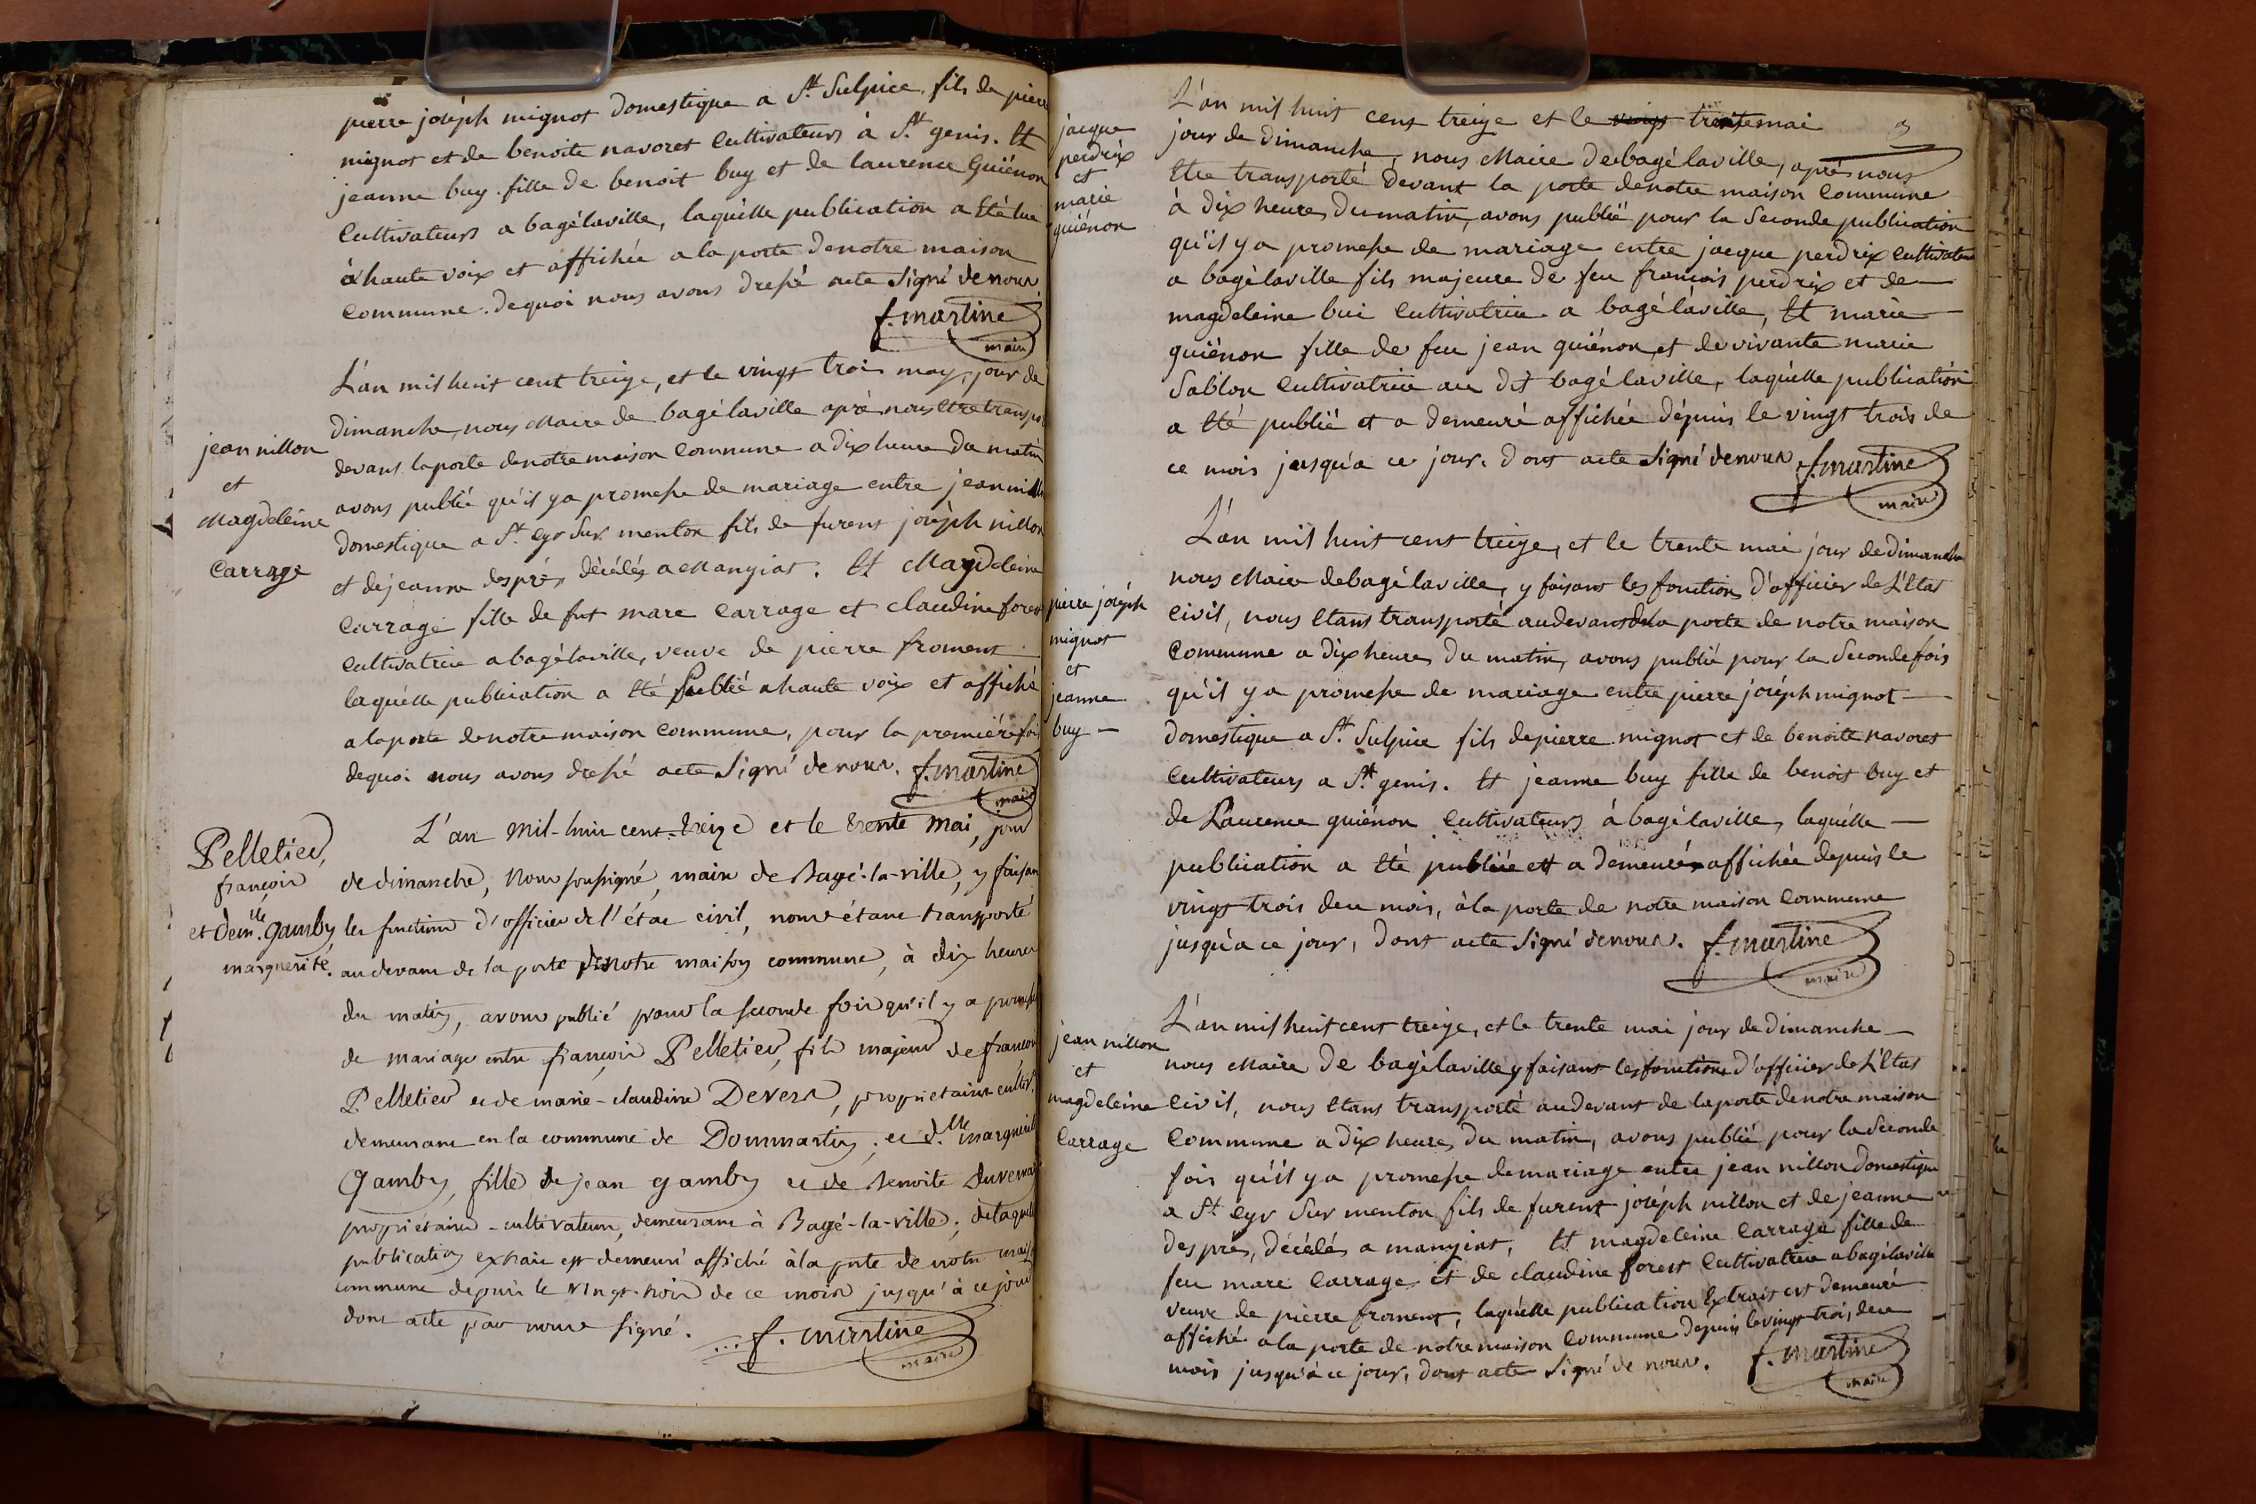 pierre joséph mignot domestique a St. Sulpice, fils de pierre
mignot et de benoite navoret Cultivateurs à St. genis. Et
jeanne buy fille de benoit buy et de laurence Guiénon
Cultivateurs a bagélaville, laquélle publication a Eté lue
à haute voix et affichée a la porte denotre maison
Commune. dequoi nous avons dressé acte Signé denous
f. martine
maire
jean nillon
et
Magdeleine
Carrage
L'an mil huit cent treize, et le vingt trois may, jour de
dimanche, nous Maire de bagélaville aprè nous Etre transpo
devant laporte denotre maison Commune a dix heure du matin
avons publié qu'il ya promesse de mariage entre jean nillon
domestique a St. Cyr Sur menton fils de furent joséph nillon
et dejeanne després, décélés a Mangiat. Et Magdeleine
Carrage fille de fut marc Carrage et claudine forest
Cultivatrice abagélaville, veuve de pierre froment
laquélle publication a Eté Publié ahaute voix et affiché
alaporte denotre maison Commune, pour la premiére foi
dequoi nous avons dressé acte Signé denous. f. martine
maire
Pelletier,
françois
et Demlle. Gamby
marguerite.
L'an Mil-huit cent-treize et le trente Mai, jour
de dimanche, Nous soussigné, maire de Bagé-la-ville, y faisan
les fonctions d'officier de l'état civil, nous étant transporté
au devant de la porte de notre maison commune, à dix heures
du matin, avons publié pour la seconde fois qu'il y a promesse
de mariage entre françois Pelletier, fils majeur de françois
Pelletier et de marie-claudine Devers, propriétaires cultivrs.
demeurant en la commune de Dommartin; et dlle. marguerite
Gamby, fille de jean gamby et de Benoite Duvernai
propriétaires-cultivateurs, demeurant à Bagé-la-ville; delaquelle
publication extrait est demeuré affiché à la porte de notre maison
commune depuis le vingt-trois de ce mois jusqu'à ce jour
dont acte par nous signé. f. martine
maire
3
jacque
perdrix
et
marie
guiénon
L'an mil huit cent treize et le vingt trente mai
jour de dimanche, nous Maire debagélaville, aprés nous
Etre transporté devant la porte denotre maison Commune
à dix heures dumatin, avons publié pour la Seconde publication
qu'il ya promesse de mariage entre jacque perdrix Cultivateur
a bagélaville fils majeure de feu françois perdrix et de
magdeleine bui Cultivatrice a bagélaville, Et marie
guiénon fille de feu jean guiénon, et de vivante marie
Sablon Cultivatrice au dit bagélaville, laquélle publication
a Eté publié et a demeuré affichée dépuis le vingt trois de
ce mois jusqu'a ce jour. dont acte Signé denous f. martine
maire
pierre joséph
mignot
et
jeanne
buy
L'an mil huit cent treize, et le trente mai jour dedimanche
nous Maire debagélaville, y faisant les fonctions d'officier de L'Etat
Civil, nous Etant transporté audevant de la porte de notre maison
Commune a dix heures du matin, avons publié pour la Seconde fois
qu'il ya promesse de mariage entre pierre joséph mignot
domestique a St. Sulpice fils depierre mignot et de benoite navoret
Cultivateurs a St. genis. Et jeanne buy fille de benoit buy et
de Laurence guiénon Cultivateurs à bagélaville, laquélle
publication a Eté publiée et a demeurée affichée depuis le
vingt trois dece mois, à la porte de notre maison Commune
jusqu'a ce jour, dont acte Signé denous. f. martine
maire
jean nillon
et
magdeleine
Carrage
L'an mil huit cent treize, et le trente mai jour de dimanche
nous Maire de bagélaville y faisant les fonctions d'officier de L'Etat
Civil, nous Etant transporté audevant de laporte denotre maison
Commune a dix heures du matin, avons publié pour la Seconde
fois qu'il ya promesse demariage entre jean nillon domestique
a St. Cyr Sur menton fils de furent joséph nillon et de jeanne
després, décélés a mangiat, Et magdeleine Carrage fille de
feu marc Carrage et de claudine forest Cultivatrice abagélaville
veuve de pierre froment, laquélle publication Extrait est demeuré
affiché ala porte de notre maison Commune depuis levingt trois dece
mois jusqu'à ce jour, dont acte Signé de nous. f. martine
maire